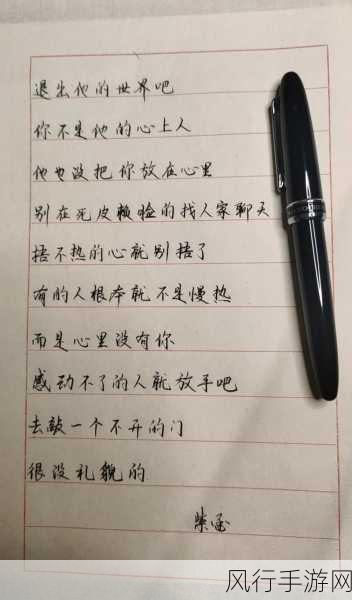 退出他的世界吧
你不是他的心上人
他也没把你放在心里
别在死皮赖脸的找人家聊天
捂不热的心就别捂了
有的人根本就不是慢热
而是心里没有你
感动不了的人就放手吧
去敲一个不开的门
很没礼貌的
风行手游网